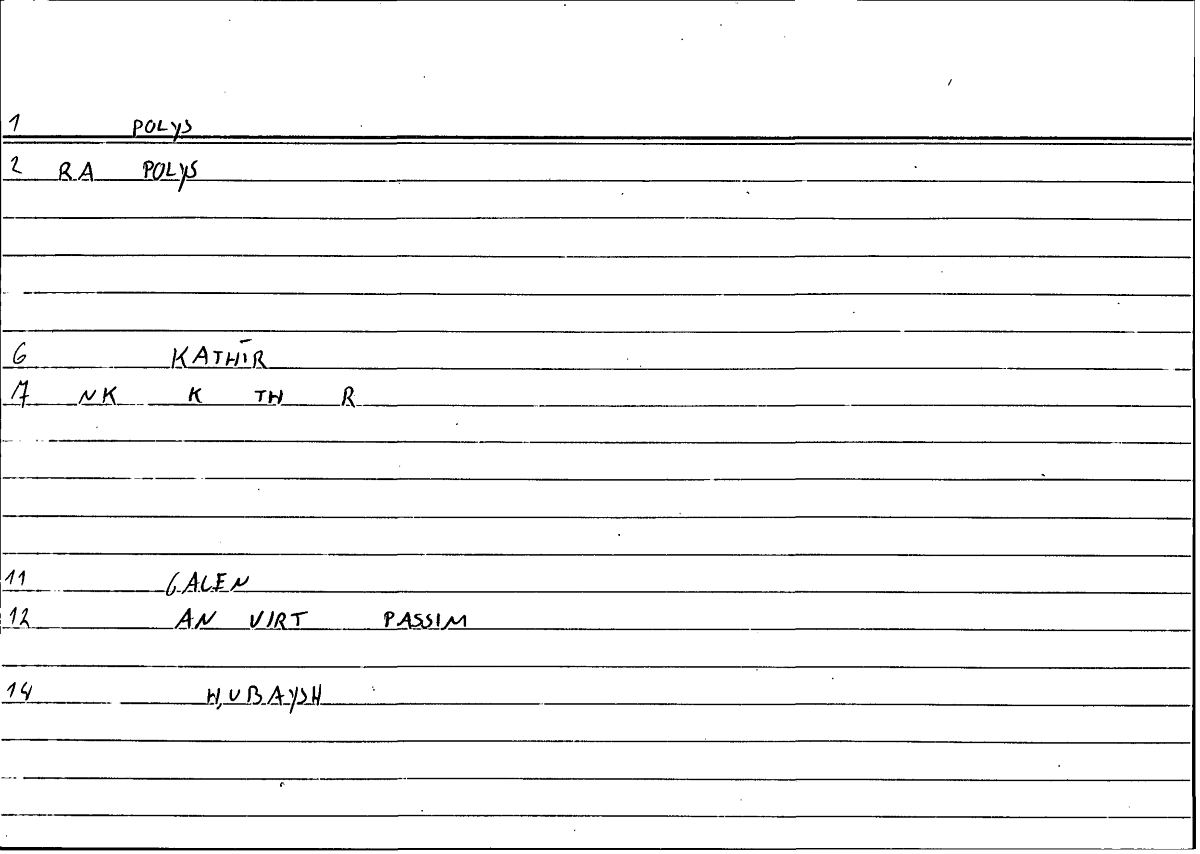 1 POLYS
2 RA POLYS
6 KATHĪR
17 NK K TH R
11 GALEN
12 AN VIRT PASSIM
14 ḤUBAYSH